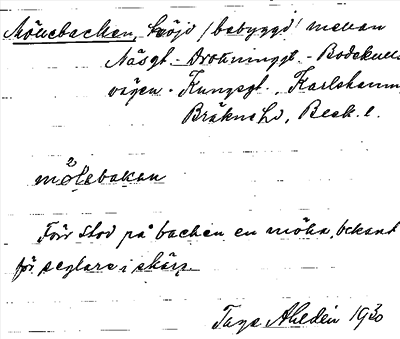 Möllebacken, höjd (bebyggd) mellan
Näsgt. - Drottninggt. - Bodekulls
vägen - Kungsgt., Karlshamn,
Bräkne hd, Blek. l.
mö̀lebakan
Förr stod på backen en mölla, bekant
för seglare i skärg.
Tage Ahldén 1930